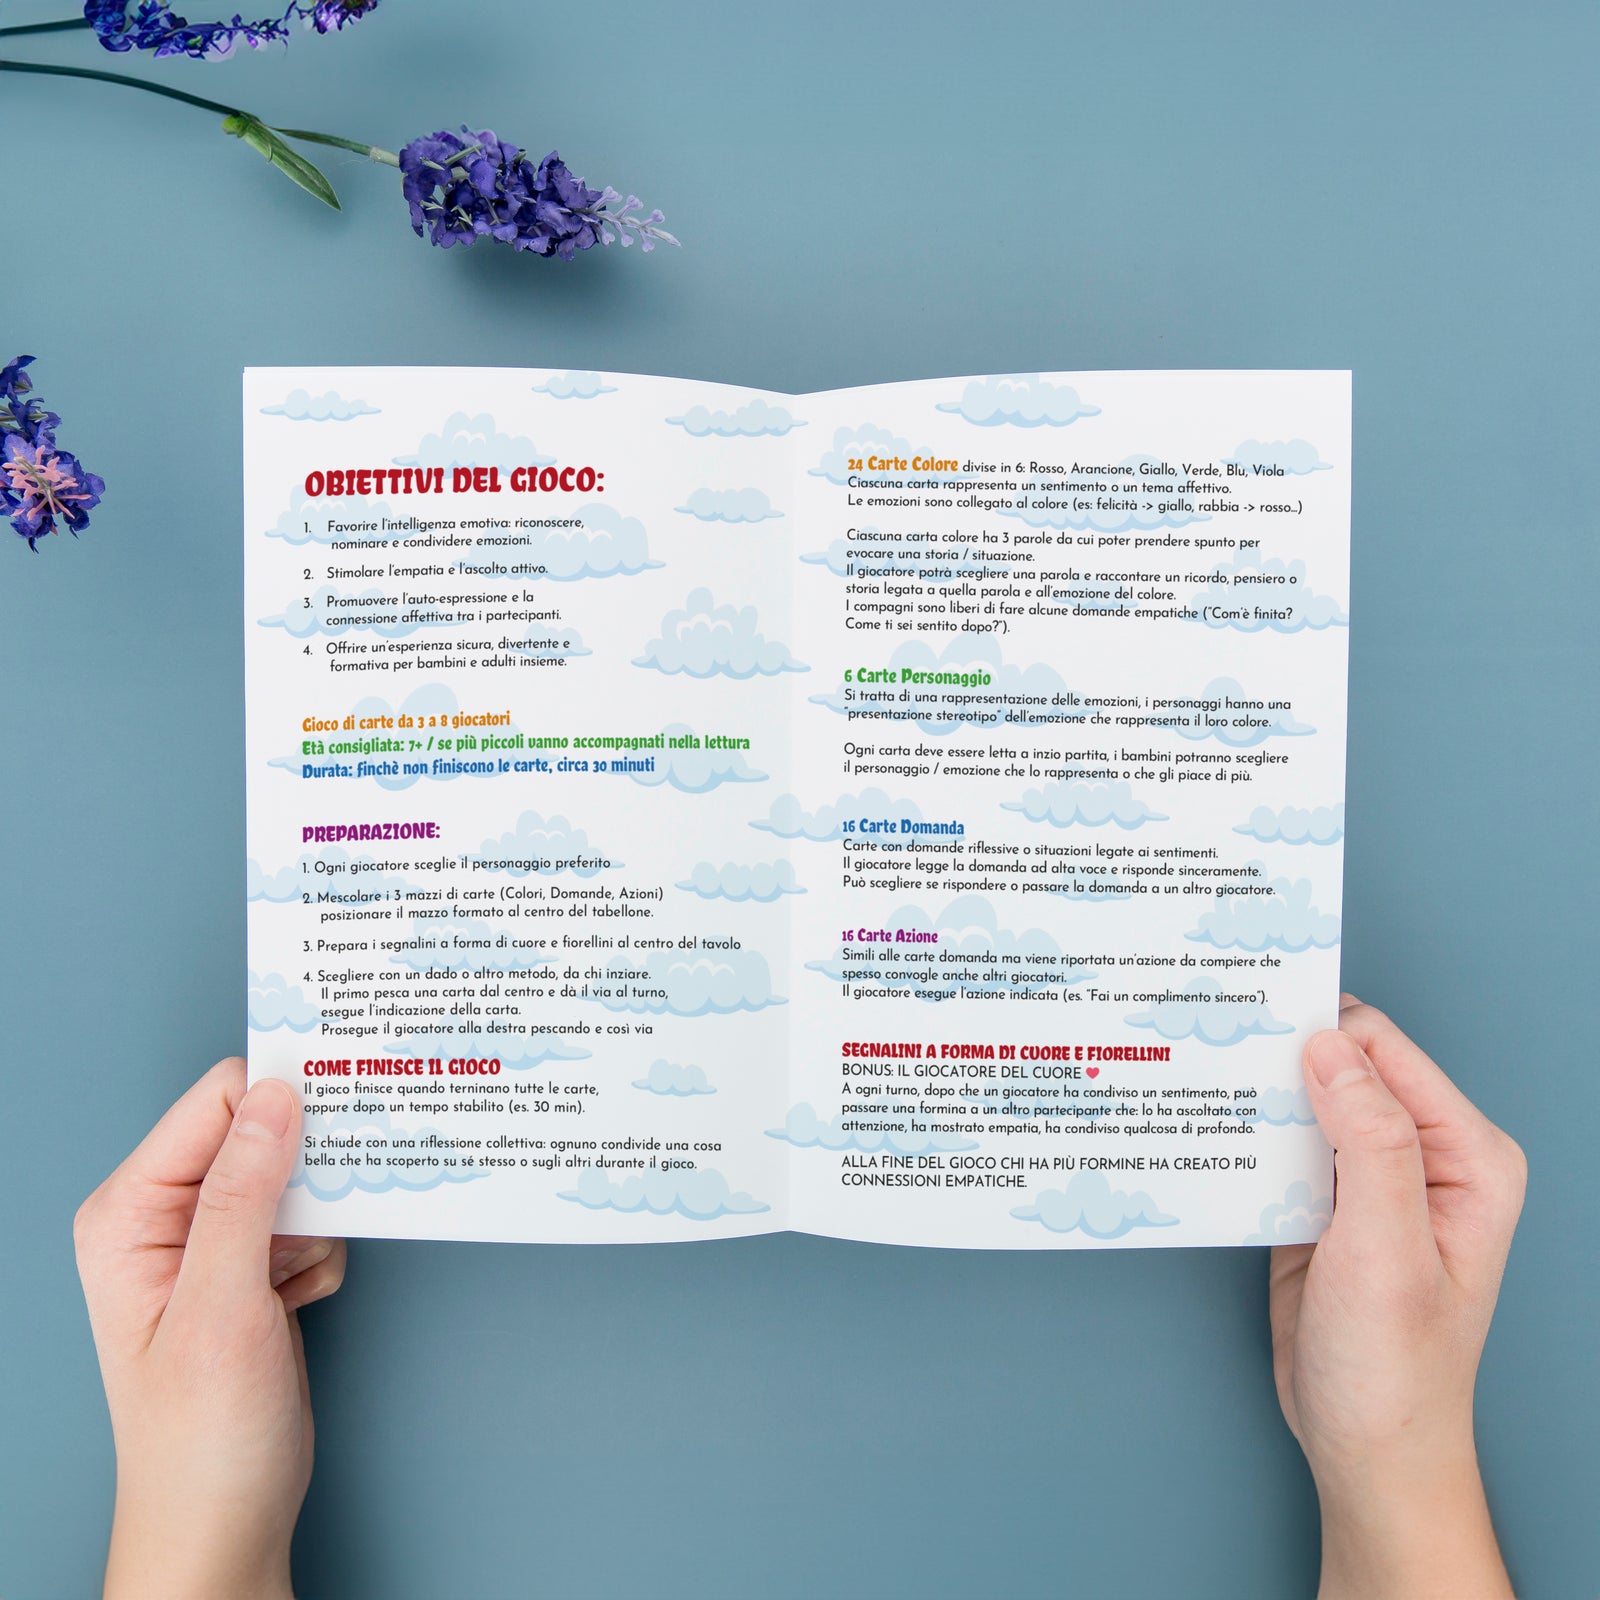 OBIETTIVI DEL GIOCO:
1. Favorire l'intelligenza emotiva: riconoscere,
nominare e condividere emozioni.
2. Stimolare l'empatia e l'ascolto attivo.
3. Promuovere l'auto-espressione e la
connessione affettiva tra i partecipanti.
4. Offrire un'esperienza sicura, divertente e
formativa per bambini e adulti insieme.
Gioco di carte da 3 a 8 giocatori
Età consigliata: 7+ / se più piccoli vanno accompagnati nella lettura
Durata: finchè non finiscono le carte, circa 30 minuti
PREPARAZIONE:
1. Ogni giocatore sceglie il personaggio preferito
2. Mescolare i 3 mazzi di carte (Colori, Domande, Azioni)
posizionare il mazzo formato al centro del tabellone.
3. Prepara i segnalini a forma di cuore e fiorellini al centro del tavolo
4. Scegliere con un dado o altro metodo, da chi inziare.
Il primo pesca una carta dal centro e dà il via al turno,
esegue l'indicazione della carta.
Prosegue il giocatore alla destra pescando e così via
COME FINISCE IL GIOCO
Il gioco finisce quando terninano tutte le carte,
oppure dopo un tempo stabilito (es. 30 min).
Si chiude con una riflessione collettiva: ognuno condivide una cosa
bella che ha scoperto su sé stesso o sugli altri durante il gioco.
24 Carte Colore divise in 6: Rosso, Arancione, Giallo, Verde, Blu, Viola
Ciascuna carta rappresenta un sentimento o un tema affettivo.
Le emozioni sono collegato al colore (es: felicità -> giallo, rabbia -> rosso...)
Ciascuna carta colore ha 3 parole da cui poter prendere spunto per
evocare una storia / situazione.
Il giocatore potrà scegliere una parola e raccontare un ricordo, pensiero o
storia legata a quella parola e all'emozione del colore.
I compagni sono liberi di fare alcune domande empatiche ("Com'è finita?
Come ti sei sentito dopo?").
6 Carte Personaggio
Si tratta di una rappresentazione delle emozioni, i personaggi hanno una
"presentazione stereotipo" dell'emozione che rappresenta il loro colore.
Ogni carta deve essere letta a inzio partita, i bambini potranno scegliere
il personaggio / emozione che lo rappresenta o che gli piace di più.
16 Carte Domanda
Carte con domande riflessive o situazioni legate ai sentimenti.
Il giocatore legge la domanda ad alta voce e risponde sinceramente.
Può scegliere se rispondere o passare la domanda a un altro giocatore.
16 Carte Azione
Simili alle carte domanda ma viene riportata un'azione da compiere che
spesso convogle anche altri giocatori.
Il giocatore esegue l'azione indicata (es. "Fai un complimento sincero").
SEGNALINI A FORMA DI CUORE E FIORELLINI
BONUS: IL GIOCATORE DEL CUORE ❤
A ogni turno, dopo che un giocatore ha condiviso un sentimento, può
passare una formina a un altro partecipante che: lo ha ascoltato con
attenzione, ha mostrato empatia, ha condiviso qualcosa di profondo.
ALLA FINE DEL GIOCO CHI HA PIÙ FORMINE HA CREATO PIÙ
CONNESSIONI EMPATICHE.